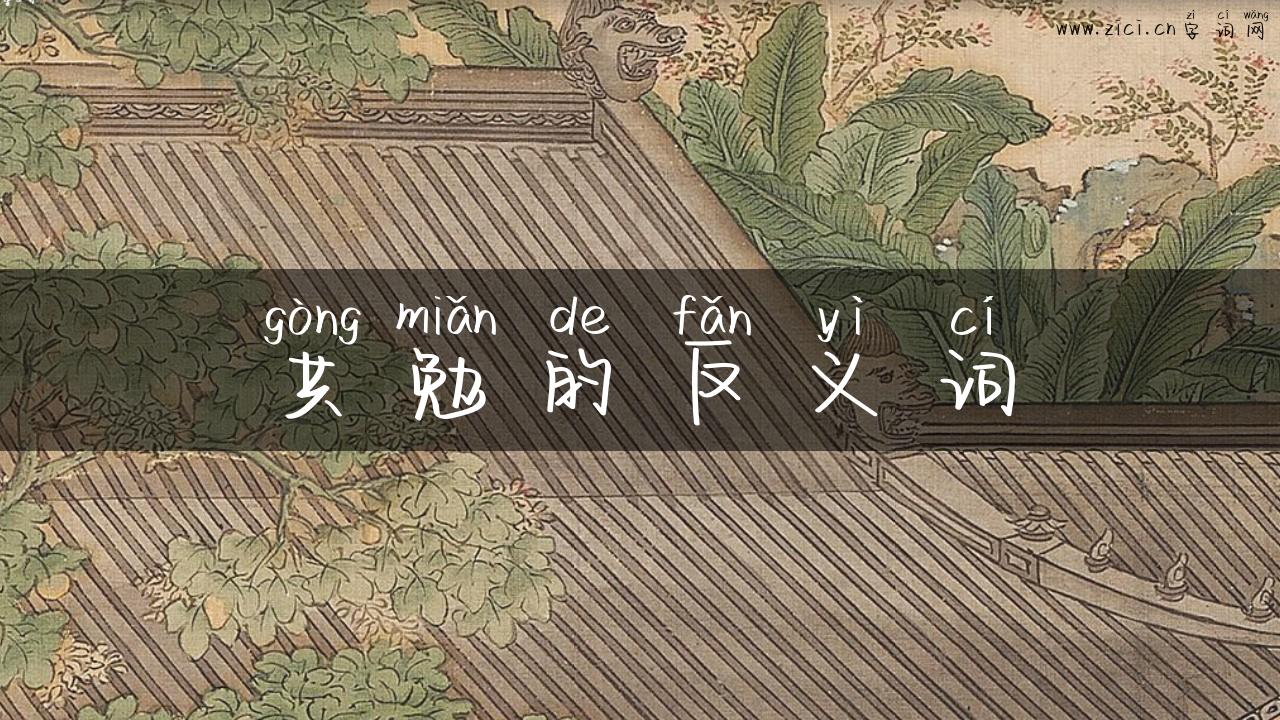 zì cí wǎng
www.zici.cn 字词网
gòng miǎn de fǎn yì cí
共勉的反义词